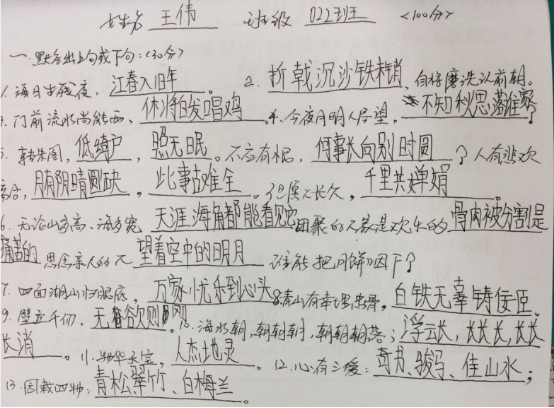 姓名 王伟 班级 022班 <100分>
一.默写出上句或下句:(30分)
1.海日生残夜,江春入旧年。2.折戟沉沙铁未销,自将磨洗认前朝。
3.门前流水尚能西,休将白发唱鸡。4.今夜月明人尽望,不知秋思落谁家?
5.转朱阁,低绮户,照无眠。不应有恨,何事长向别时圆?人有悲欢
离合,月有阴晴圆缺,此事古难全。但愿人长久,千里共婵娟。
6.无论山多高、海多宽 天涯海角都能看见它 团聚的人若是欢乐的 骨肉被分割是
痛苦的 思念亲人的人 望着空中的明月 谁能把月饼咽下?
7.四面湖山归眼底,万家忧乐到心头。8.青山有幸埋忠骨,白铁无辜铸佞臣。
9.壁立千仞,无欲则刚。10.海水朝,朝朝朝,朝朝朝落;浮云长,长长长,长长
长消。11.物华天宝,人杰地灵。12.心有三爱:奇书、骏马、佳山水;
13.园栽四物:青松、翠竹、白梅兰。